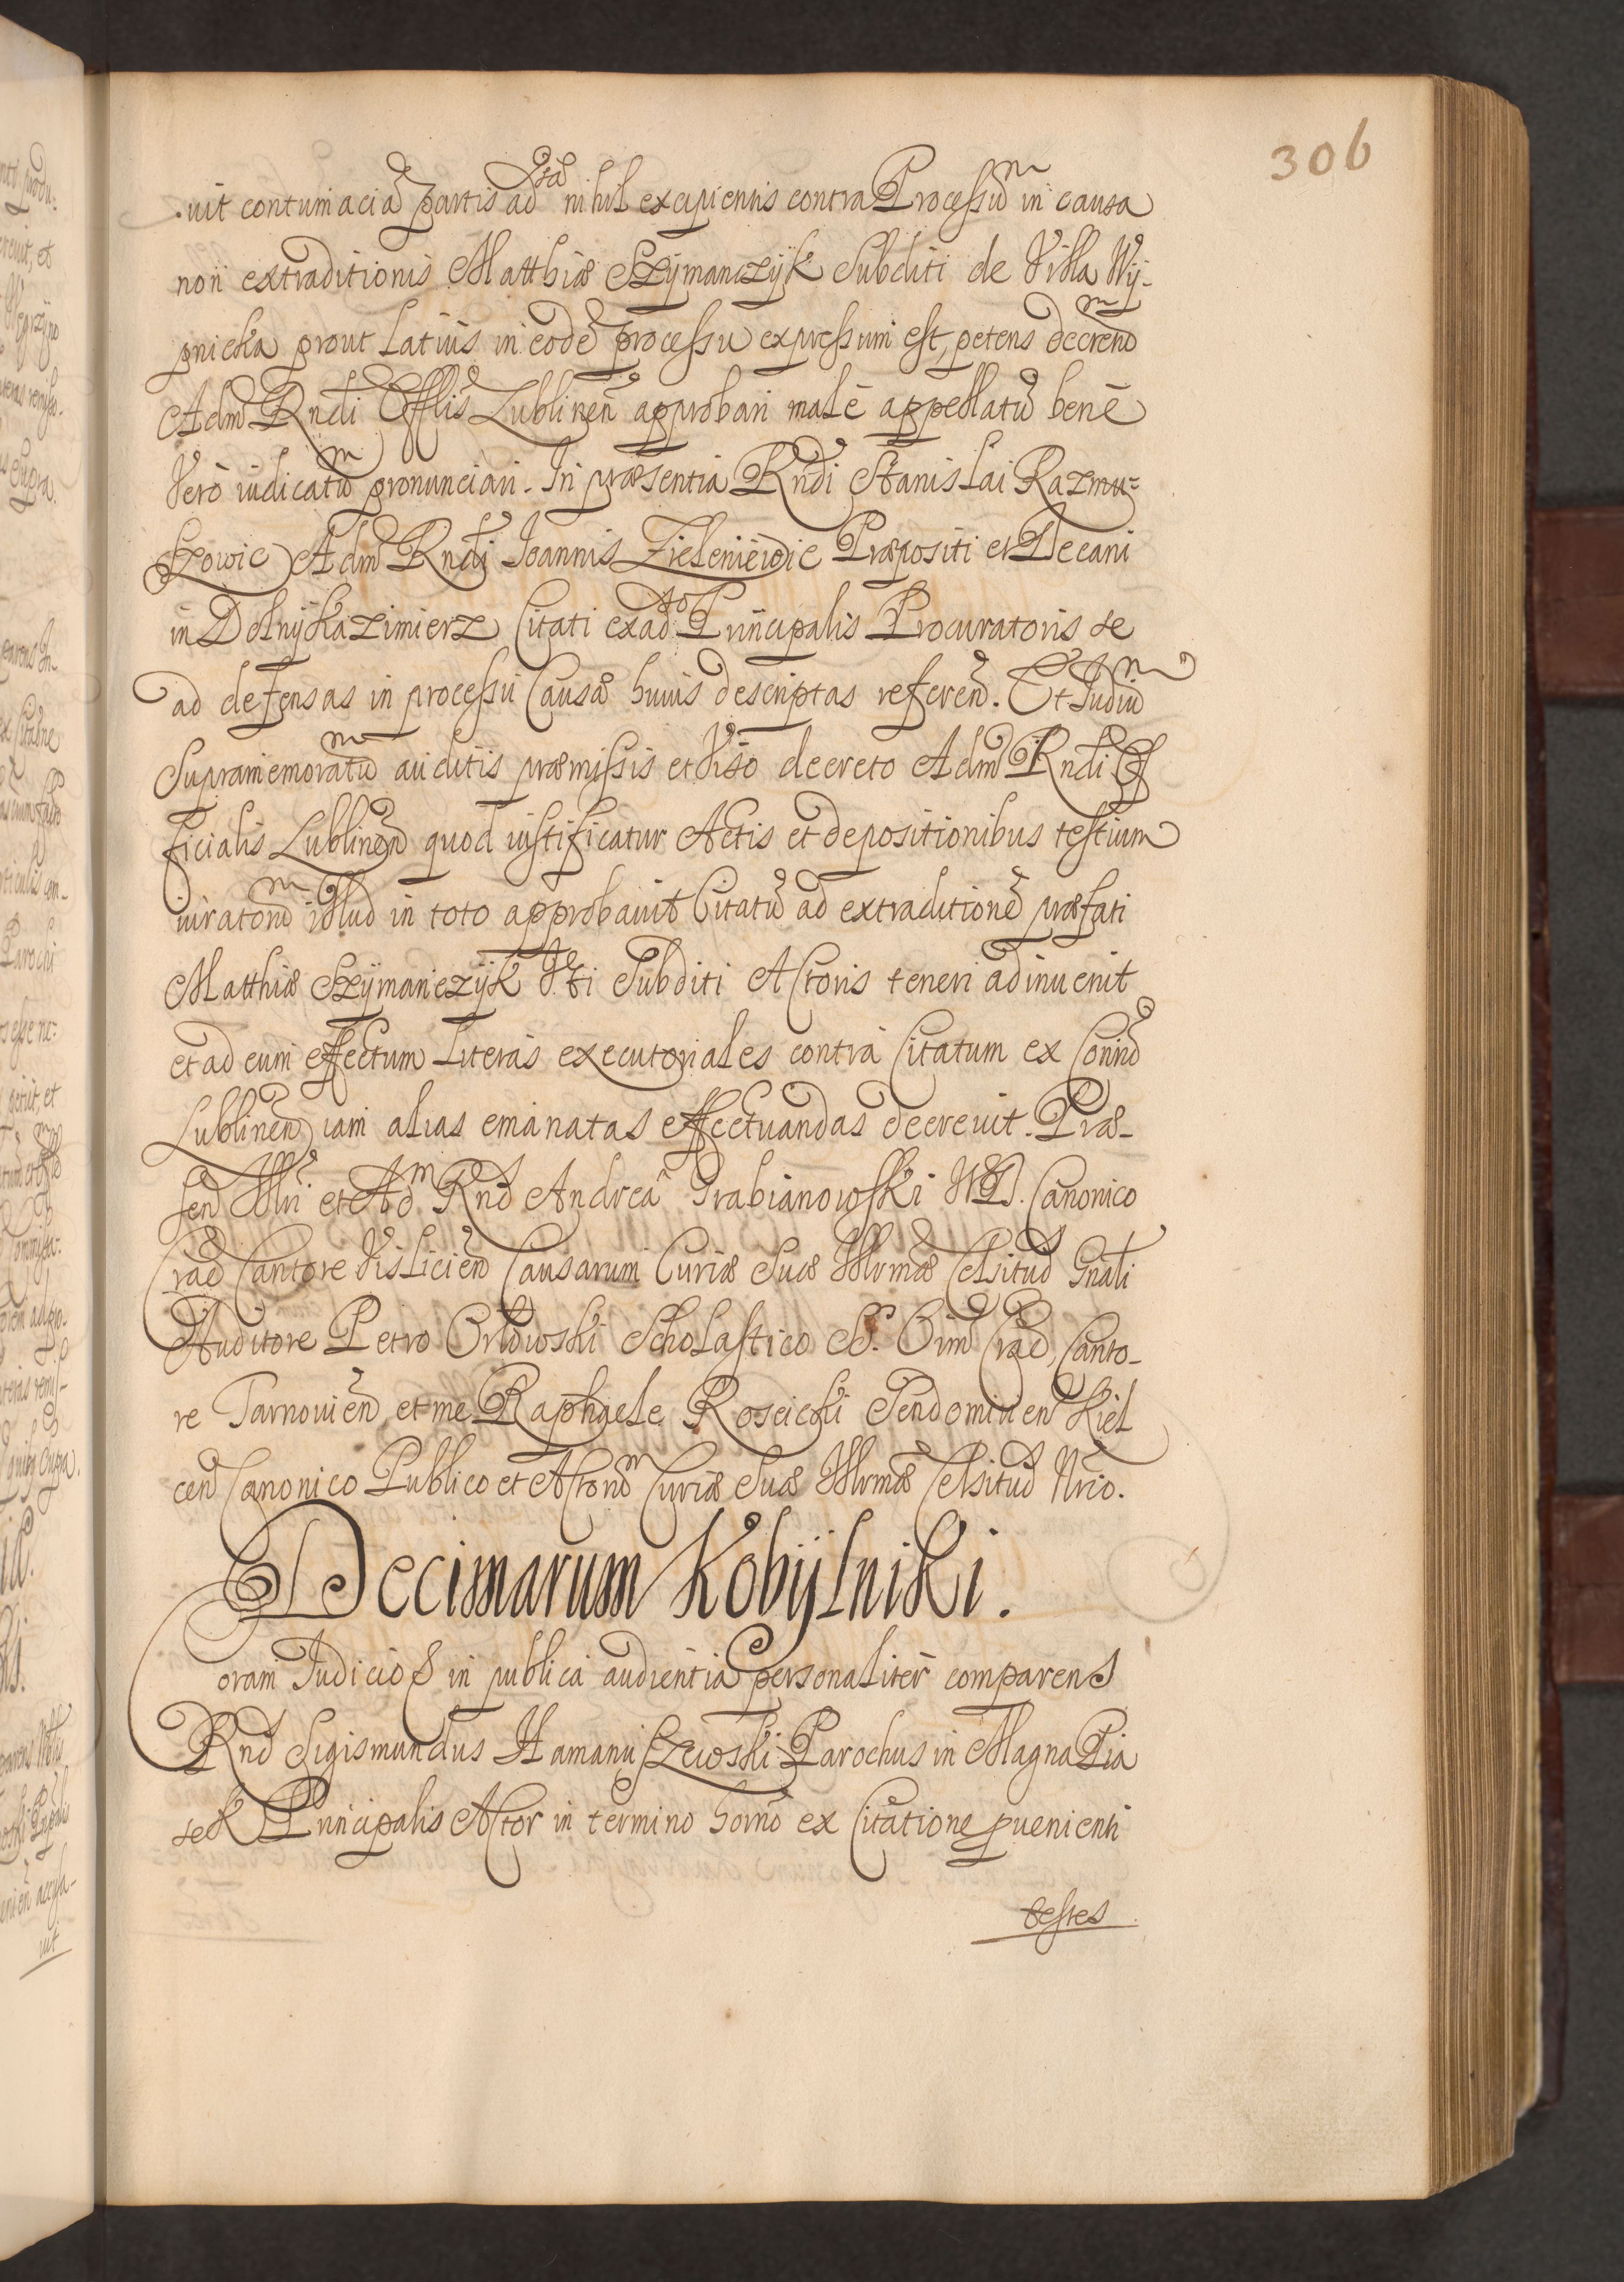 306
uit contumaciã partis adsã nihil excipientis contra Processũm in causa
non extraditionis Matthiæ Szÿmanczÿk Subditi de Villa Wÿ-
pnicha prout latius in eodẽ processu expressum est, petens decretũm
Admũ Rndi Offlis Lublineñ approbari malè appellatũ benè
Vero iudicatũm pronunciari. In præsentia Rndi Stanislai Razmu=
szowic Admũ Rndi Joannis Zieleniewic Præpositi et Decani
in Dolnÿ Kazimierz Citati ex adso Principalis Procuratoris se
ad defensas in processu Causæ huius descriptas refereñ. Et Iudiũm
Supramemoratũm auditis præmissis et viso decreto Admũ Rndi Of
ficialis Lublineñ quod iustificatur Actis et depositionibus testium
iuratorũm illud in toto approbauit Citatũ ad extraditionẽ præfati
Matthiæ Szÿmanczÿk Vti Subditi Actoris teneri adinuenit
et ad eum effectum literas executoriales contra Citatum ex Consñ
Lublineñ iam alias emanatas effectuandas decreuit. Præ-
señ Illri et Admũ Rnd Andrea Grabianowski V.J.D. Canonico
Crac Cantore Vislicieñ Causarum Curiæ Suæ Illrmæ Celsitud Gnali
Auditore Petro Orlowski Scholastico SS. Oim Crac, Canto-
re Tarnouieñ, et me Raphaele Roscicki Sendomirien Kiel
ceñ Canonico Publico et Actorũm Curiæ Suæ Illrmæ Celsitud Nrio.
Decimarum Kobÿlniki.
Coram Judicio S in publica audientia personaliter comparens
Rnd Sigismundus Hamanuszewski Parochus in Magna Pia
sek Principalis Actor in termino horno ex Citatione puenienti
testes